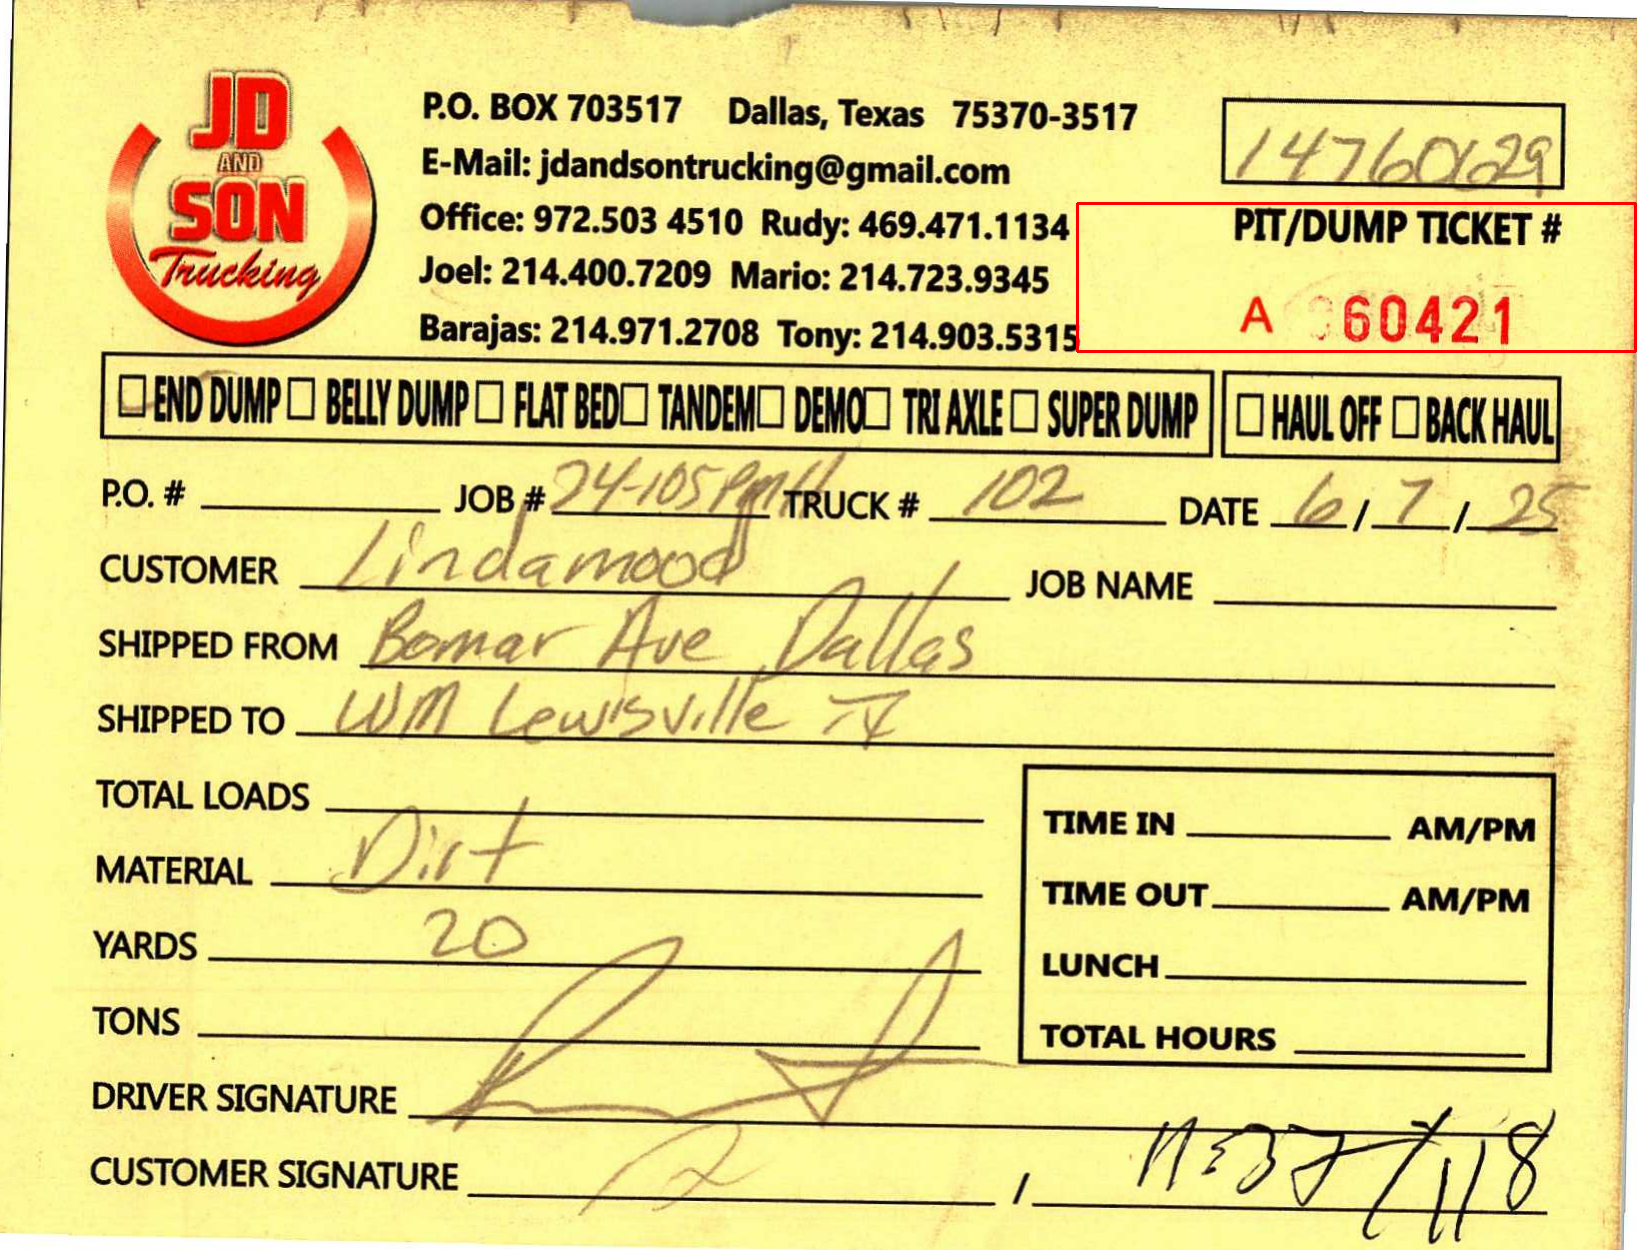 JD
AND
SON
Trucking
P.O. BOX 703517 Dallas, Texas 75370-3517
E-Mail: jdandsontrucking@gmail.com
Office: 972.503 4510 Rudy: 469.471.1134
Joel: 214.400.7209 Mario: 214.723.9345
Barajas: 214.971.2708 Tony: 214.903.5315
14760629
PIT/DUMP TICKET #
A 60421
END DUMP BELLY DUMP FLAT BED TANDEM DEMO TRI AXLE SUPER DUMP
HAUL OFF BACK HAUL
P.O. # JOB # 24-105 TRUCK # 102 DATE 6/7/25
CUSTOMER Lindamood JOB NAME
SHIPPED FROM Bomar Ave Dallas
SHIPPED TO WM Lewisville
TOTAL LOADS
MATERIAL Dirt
YARDS 20
TONS
DRIVER SIGNATURE
CUSTOMER SIGNATURE /
TIME IN AM/PM
TIME OUT AM/PM
LUNCH
TOTAL HOURS